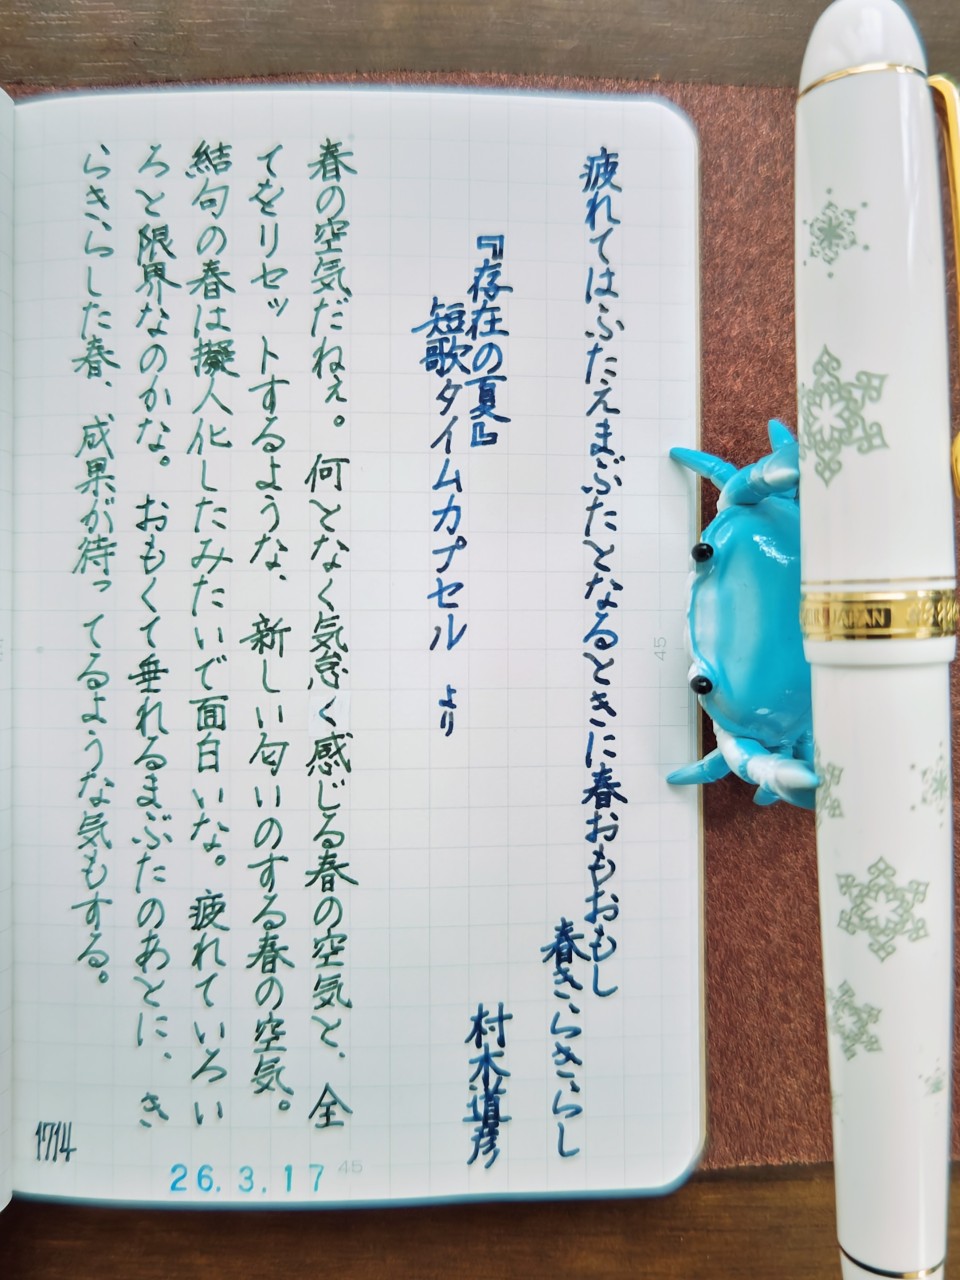 疲れてはふたえまぶたとなるときに春おもおもし
春きらきらし
『存在の夏』
短歌タイムカプセル より
村木道彦
春の空気だねぇ。何となく気怠く感じる春の空気と、全
てをリセットするような、新しい匂いのする春の空気。
結句の春は擬人化したみたいで面白いな。疲れていろい
ろと限界なのかな。おもくて垂れるまぶたのあとに、き
らきらした春、成果が待ってるような気もする。
1714
26.3.17
45
45
JAPAN